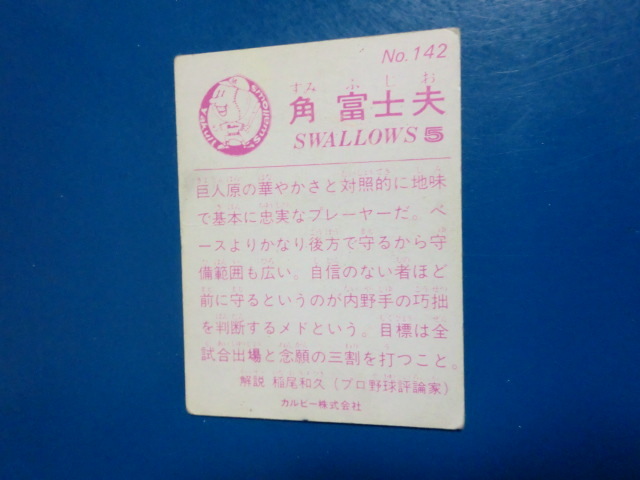 No.142
Yakult Swallows
すみ ふ じ お
角 富士夫
SWALLOWS 5
巨人原の華やかさと対照的に地味
で基本に忠実なプレーヤーだ。ベ
ースよりかなり後方で守るから守
備範囲も広い。自信のない者ほど
前に守るというのが内野手の巧拙
を判断するメドという。目標は全
試合出場と念願の三割を打つこと。
解説 稲尾和久(プロ野球評論家)
カルビー株式会社